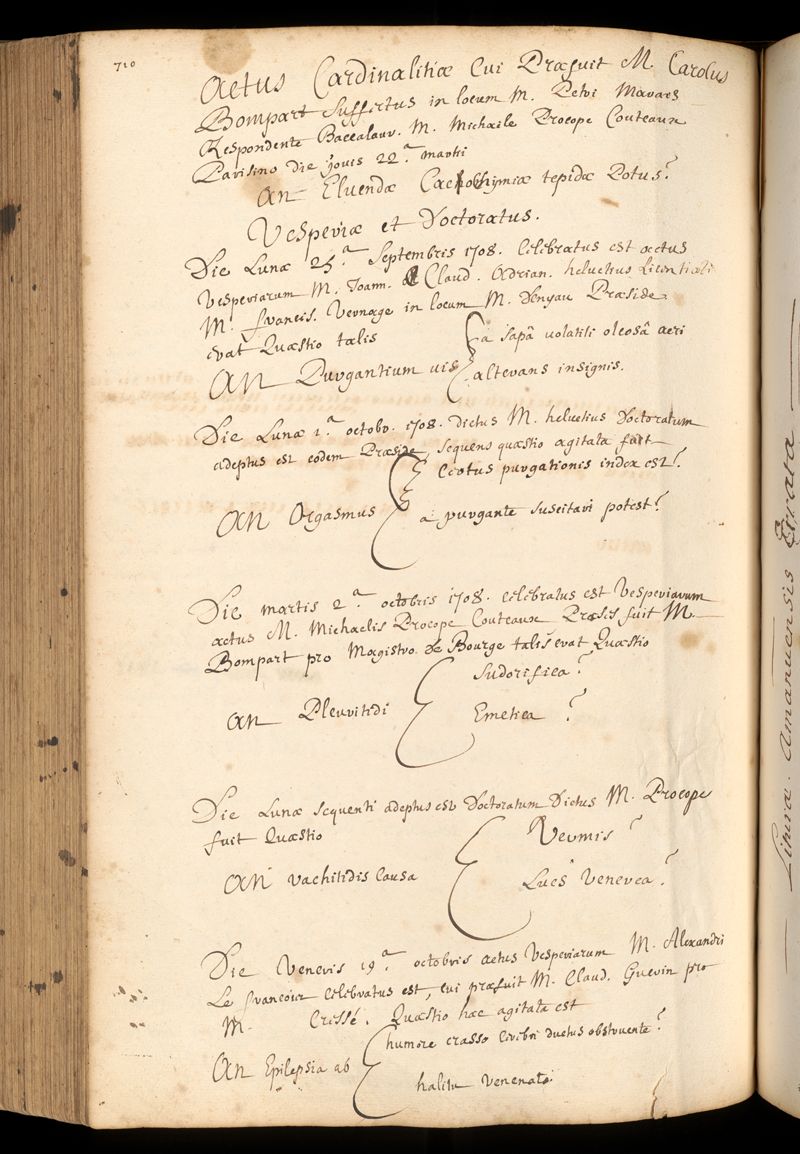 710
Actus Cardinalitiæ Cui Præfuit M. Carolus
Bompart suffectus in locum M. Petri
Respondente Baccalaur. M. Michaele Procope Couteaux
Parisino die Jovis 22.ª martii
An Eluendæ Cacochymiæ tepidæ Potus?
Vesperiæ et Doctoratus.
Die Lunæ 25.ª Septembris 1708. Celebratus est actus
Vesperiarum M. Joann. Claud. Adrian. helvetius Licentiati
M. francis. Vernage in locum M. Denyau Præside
erat Quæstio talis
An Purgantium vis
a sapâ volatili oleosâ acri
alterans insignis.
Die Lunæ 1.ª octobr. 1708. dictus M. helvetius Doctoratum
adeptus est eodem Præside, sequens quæstio agitata fuit
An Orgasmus
Certus purgationis index est?
a purgante suscitari potest?
Die martis 2.ª octobris 1708. Celebratus est Vesperiarum
actus M. Michaelis Procope Couteaux Præses fuit M.
Bompart pro Magistro de Bourge talis erat Quæstio
An Pleuritidi
Sudorifica?
Emetica?
Die Lunæ sequenti adeptus est Doctoratum Dictus M. Procope
fuit Quæstio
An rachitidis Causa
Vermis?
Lues Venerea?
Die Veneris 19.ª octobris actus Vesperiarum M. Alexandri
Le francois Celebratus est, cui præfuit M. Claud. Guerin pro
M. Cressé. Quæstio hæc agitata est
An Epilepsia ab
humore crasso Cerebri ductus obstruente?
halitu venenato
Amanuensis Errata